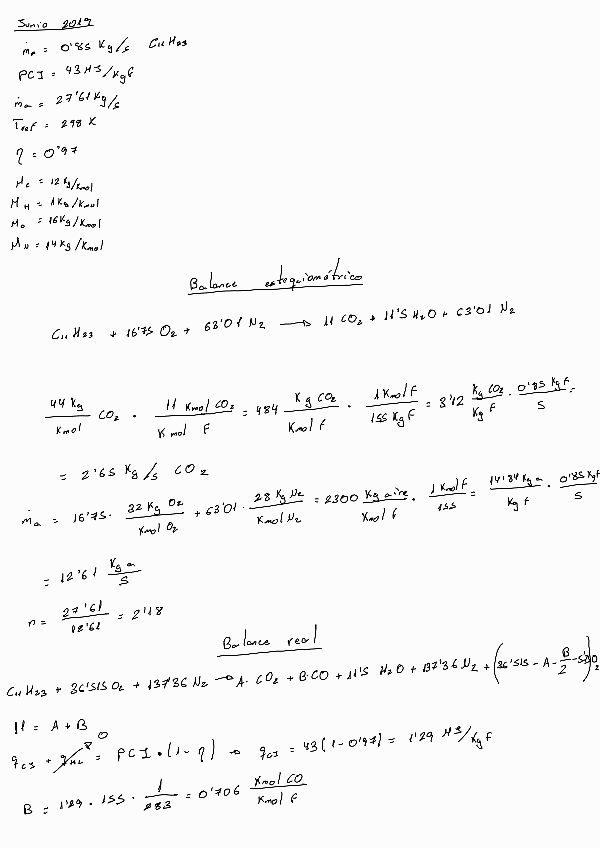 Junio 2019
ṁf = 0'85 Kg/s C11H23
PCI = 43 MJ/Kg F
ṁa = 27'61 Kg/s
Tref = 298 K
η = 0'97
Mc = 12 Kg/Kmol
MH = 1 Kg/Kmol
Mo = 16 Kg/Kmol
MN = 14 Kg/Kmol
Balance estequiométrico
C11H23 + 16'75 O2 + 63'01 N2 → 11 CO2 + 11'5 H2O + 63'01 N2
44 Kg/Kmol CO2 · 11 Kmol CO2/Kmol F = 484 Kg CO2/Kmol F · 1 Kmol F/155 Kg F = 3'12 Kg CO2/Kg F · 0'85 Kg F/s =
= 2'65 Kg/s CO2
ṁa = 16'75 · 32 Kg O2/Kmol O2 + 63'01 · 28 Kg N2/Kmol N2 = 2300 Kg aire/Kmol f · 1 Kmol F/155 = 14'84 Kg a/Kg f · 0'85 Kg F/s
= 12'61 Kg a/s
n = 27'61/12'61 = 2'18
Balance real
C11H23 + 36'515 O2 + 137'36 N2 → A · CO2 + B · CO + 11'5 H2O + 137'36 N2 + (36'515 - A - B/2 - 5'75) O2
11 = A + B
qCI + qHC 0 = PCI · (1 - η) → qCI = 43 (1 - 0'97) = 1'29 MJ/Kg F
B = 1'29 · 155 · 1/283 = 0'706 Kmol CO/Kmol F